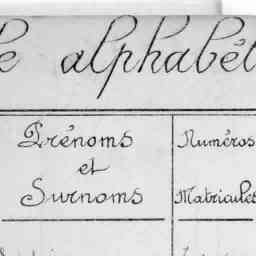 e alphabét
Prénoms Numéros
et
Surnoms Matricules